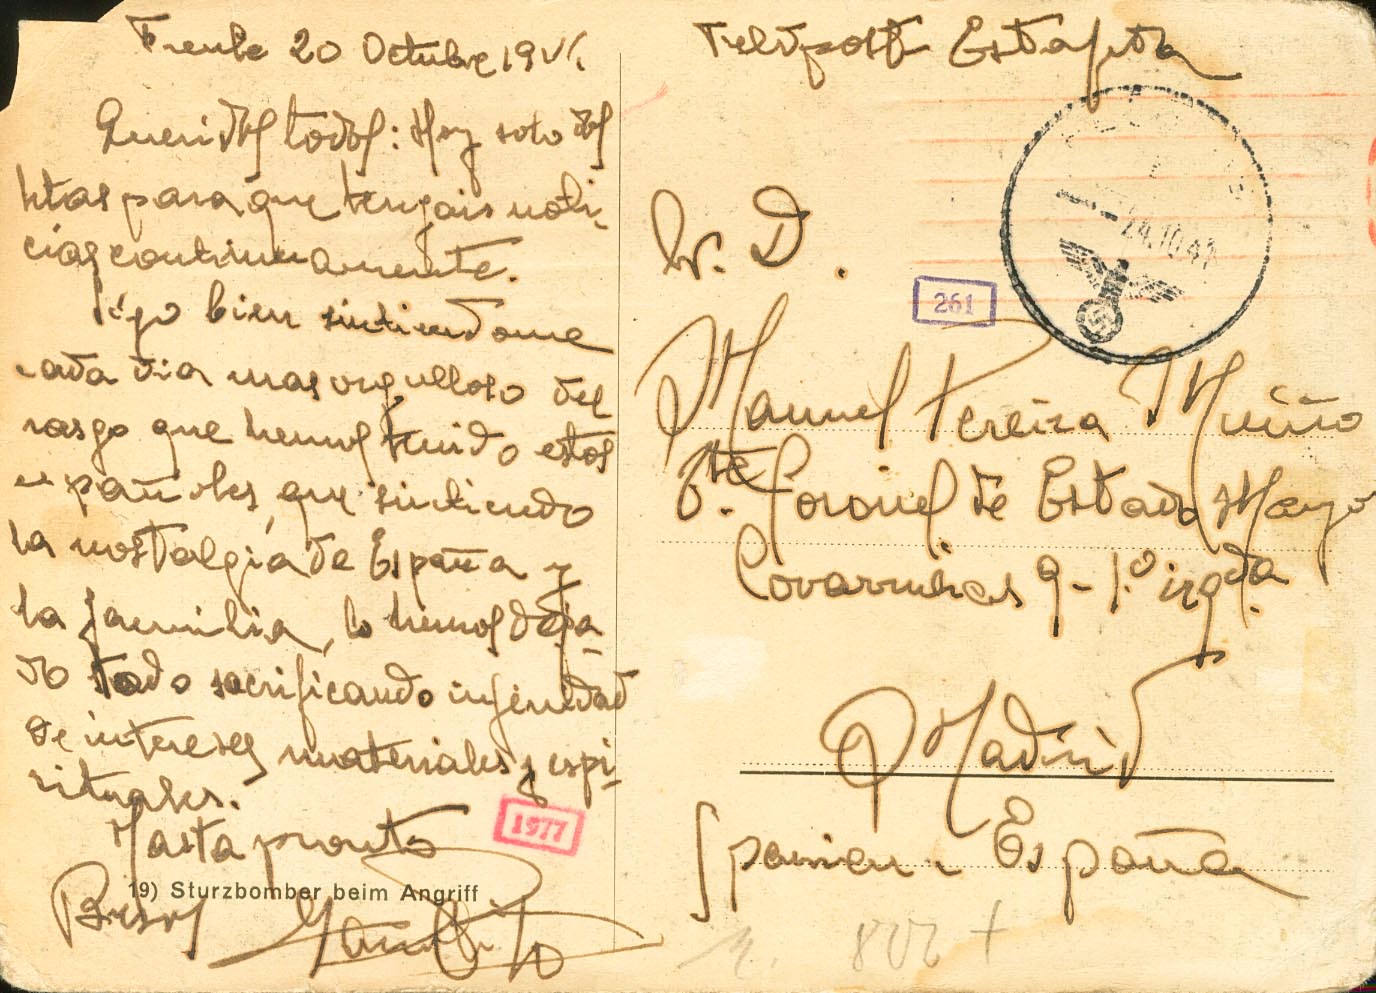 Frente 20 Octubre 1941.
Queridos todos: Hoy solo dos
letras para que tengais noti-
cias continuamente.
Sigo bien sintiendome
cada dia mas orgulloso del
rasgo que hemos tenido estos
españoles, que sintiendo
la nostalgia de España y
la familia, lo hemos deja-
do todo sacrificando infinidad
de intereses materiales y espi-
rituales.
Hasta pronto
Besos
19) Sturzbomber beim Angriff
1977
Feldpost Estafeta
24.10.41
261
Sr. D.
Manuel Pereira Muiño
Tte Coronel de Estado Mayor
Covarrubias 9 - 1.º izqda.
Madrid
Spanien - España